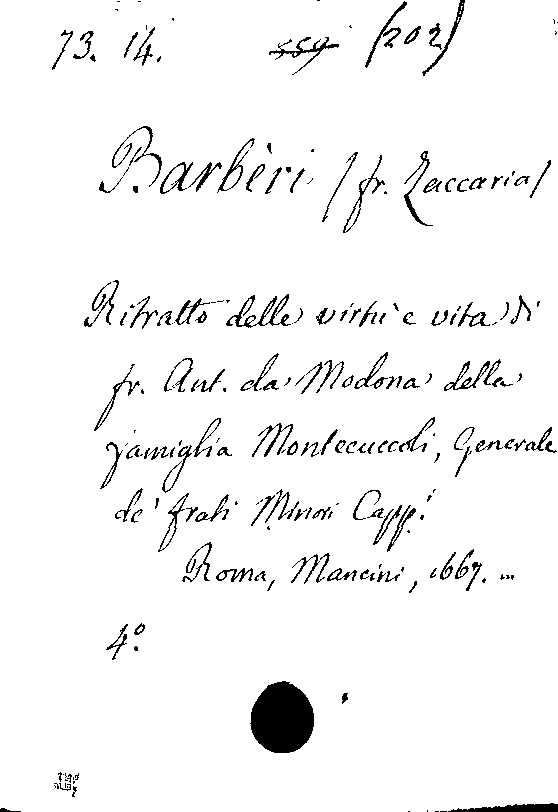 73. 14. 559 (202)
Barbèri /fr. Zaccaria/
Ritratto delle virtù e vita di
fr. Ant. da Modona della
famiglia Montecuccoli, Generale
de' frati Minori Capp.i
Roma, Mancini, 1667. ...
4.°